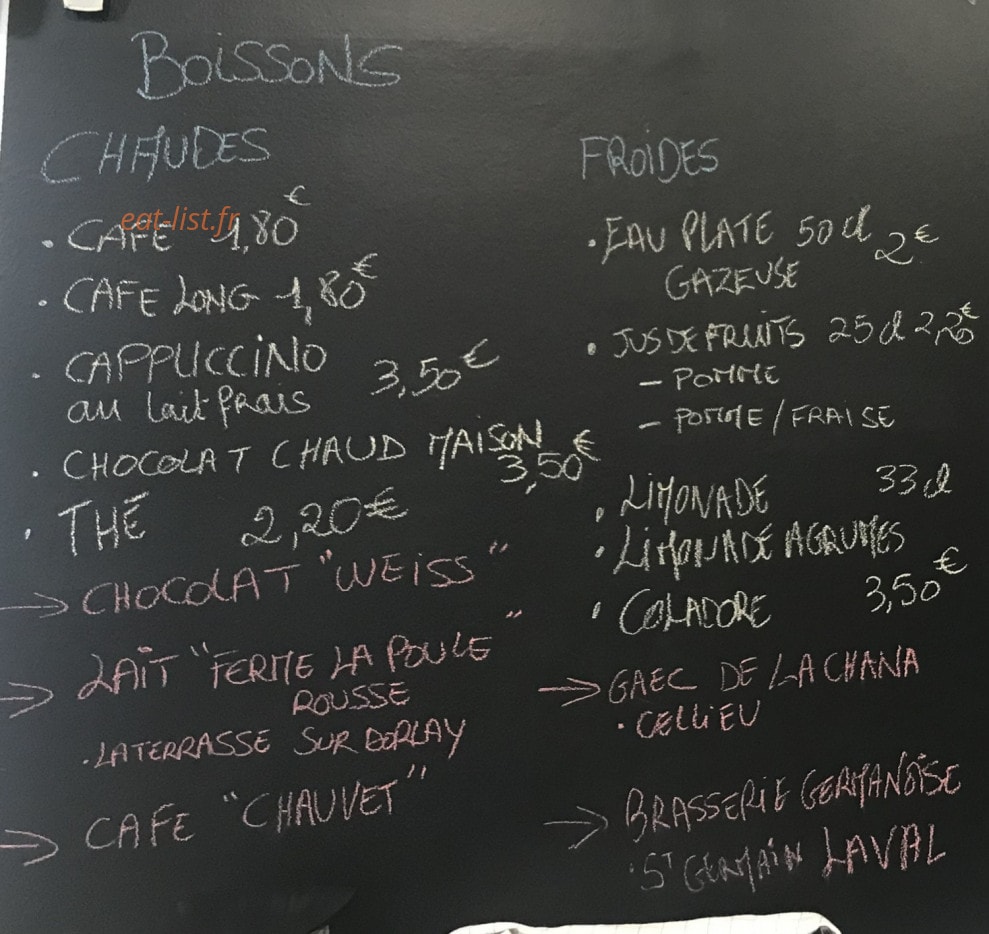 BOISSONS
CHAUDES
eat-list.fr
• CAFE 1,80€
• CAFE LONG 1,80€
• CAPPUCCINO
au lait frais 3,50€
• CHOCOLAT CHAUD MAISON
3,50€
• THÉ 2,20€
→ CHOCOLAT "WEISS"
→ LAIT "FERME LA POULE
ROUSSE"
• LA TERRASSE SUR DORLAY
→ CAFE "CHAUVET"
FROIDES
• EAU PLATE 50cl 2€
GAZEUSE
• JUS DE FRUITS 25cl 2,20€
– POMME
– POMME/FRAISE
• LIMONADE 33cl
• LIMONADE AGRUMES
• COLADORE 3,50€
→ GAEC DE LA CHANA
• CELLIEU
→ BRASSERIE GERMANOISE
• ST GERMAIN LAVAL